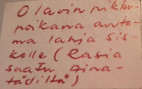 Olavin pikku-
poikana anta-
ma lahja sis-
kolle (Rasia
saatu Aina-
tädiltä)